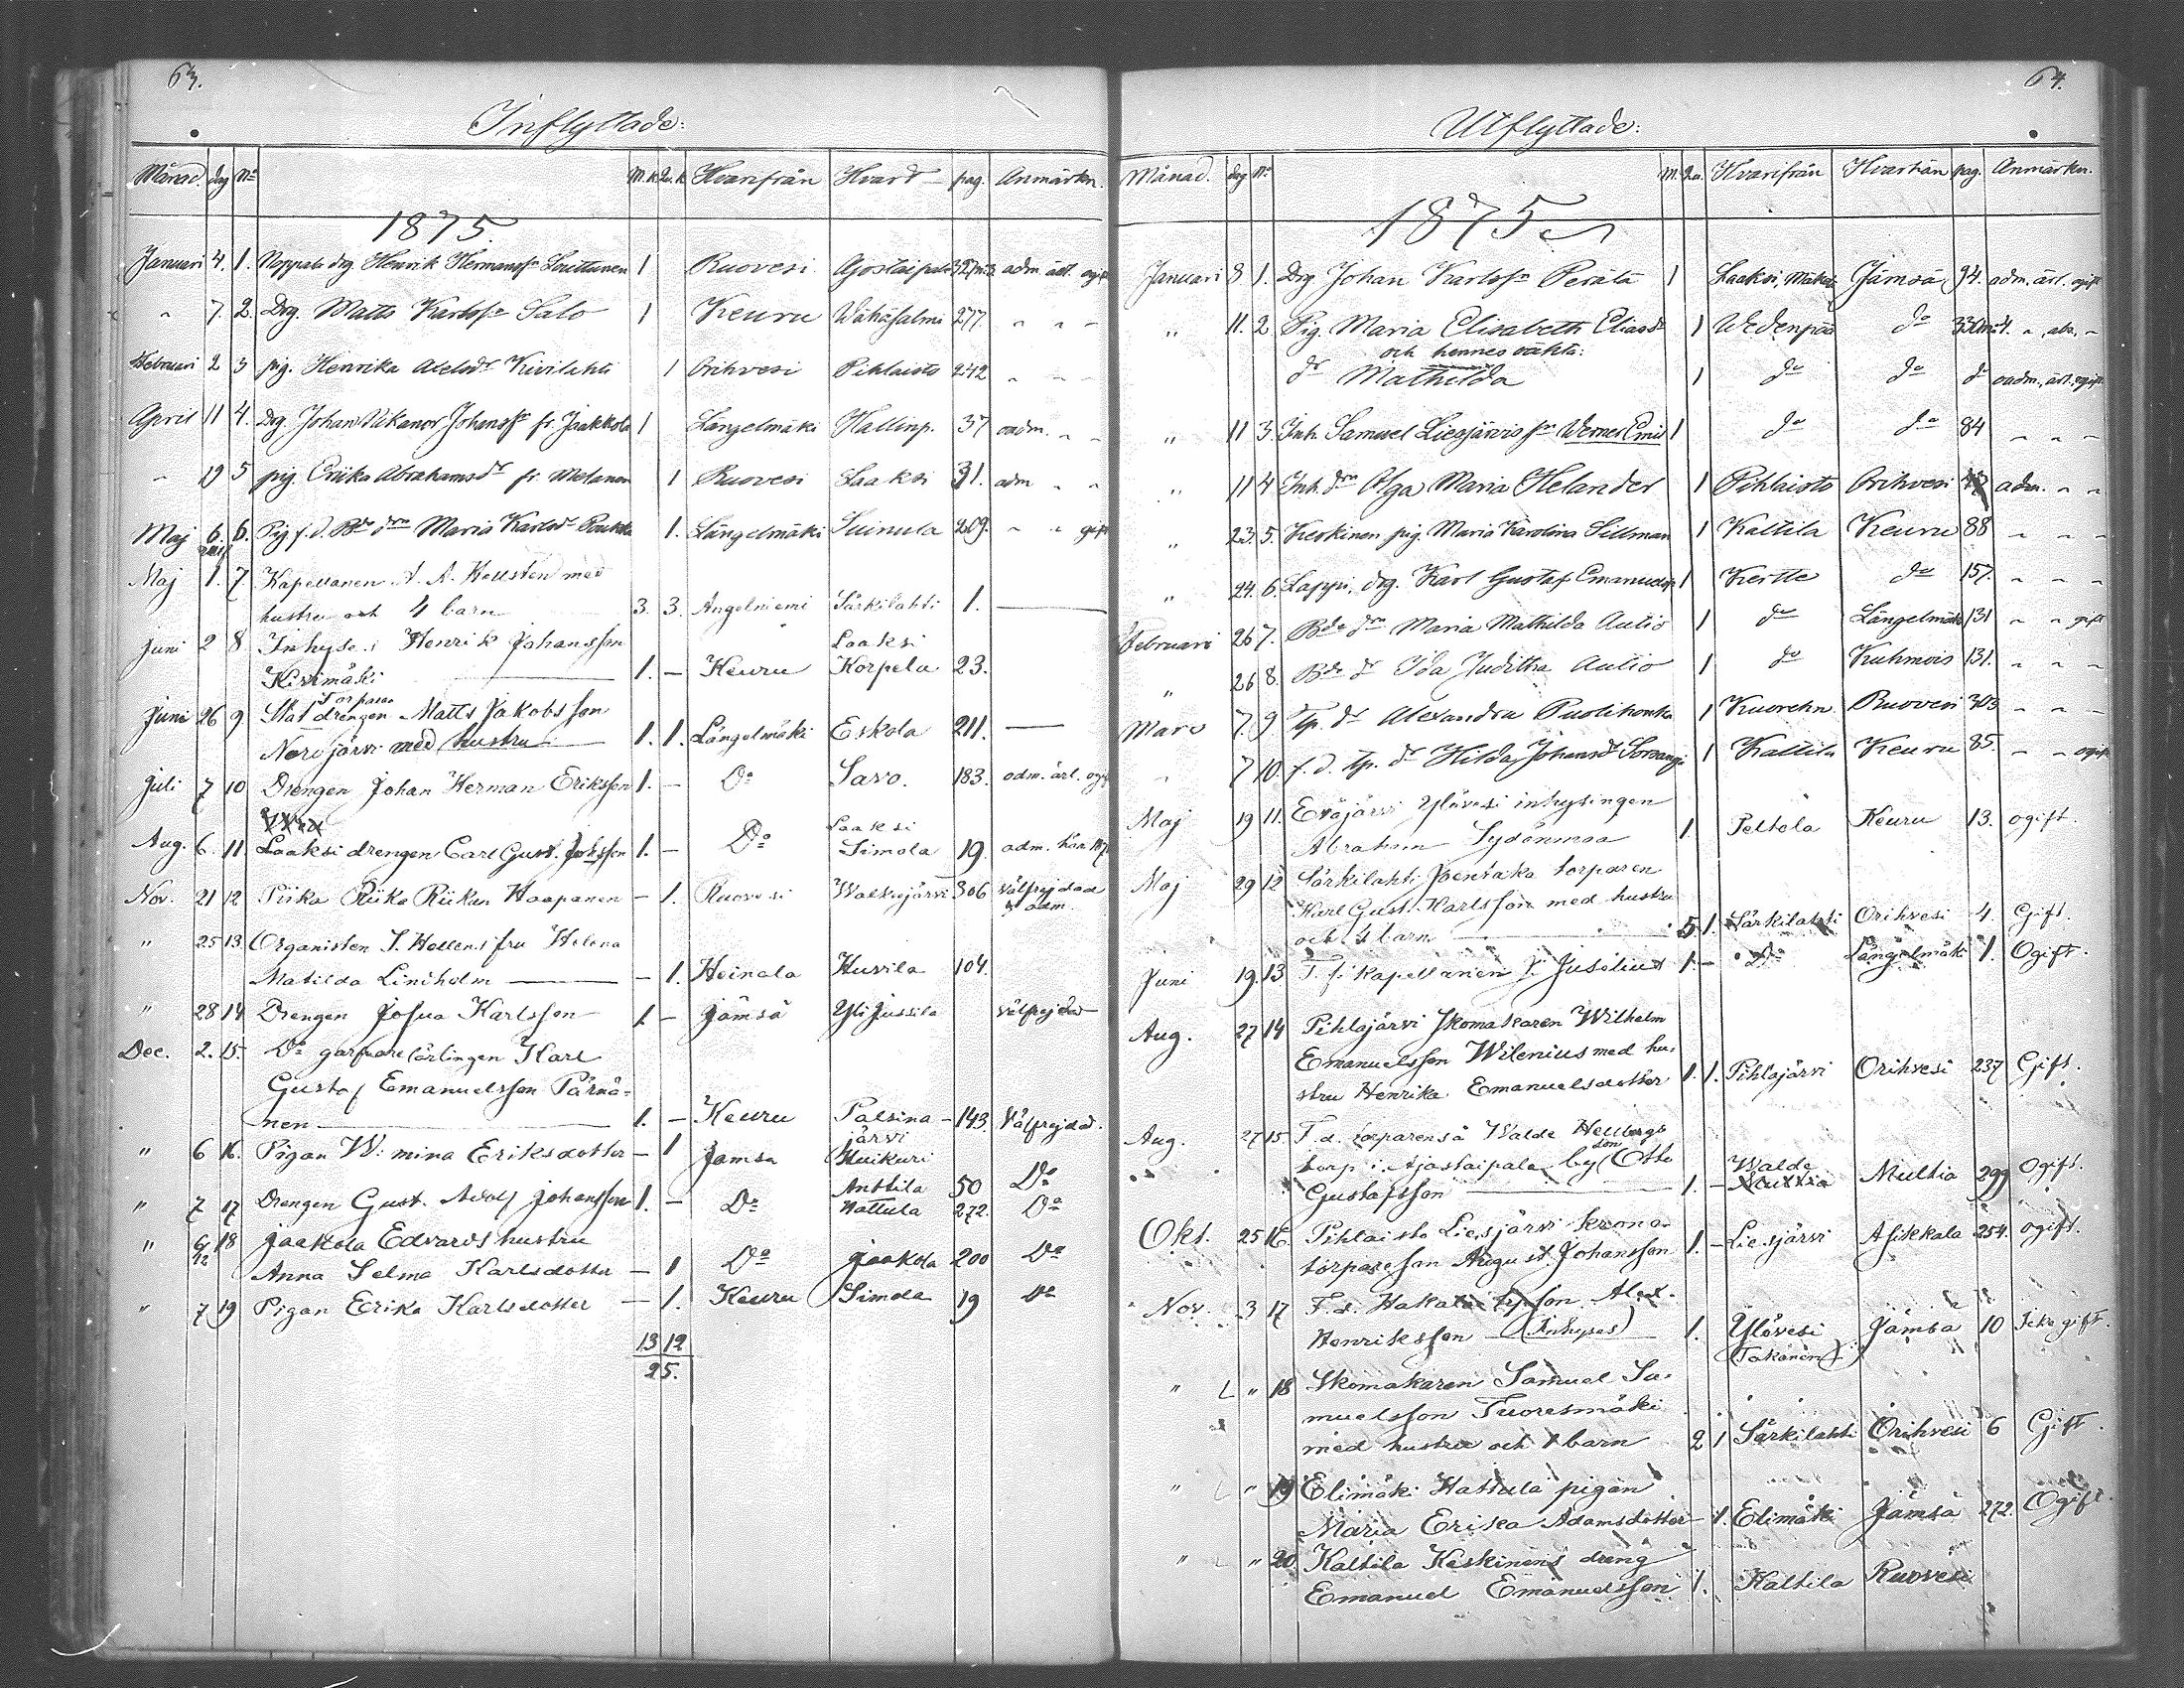 63.
Inflyttade:
Månad. dag No M.k. Qv.k. Hvarifrån Hvart pag. Anmärkn.
1875.
Januari 4. 1. drg Henrik Hermansson 1 Ruovesi 327 adm. ärl. ogift
" 7. 2. Drg. Matts Karlsson Salo 1 Keuru Wähäsalmi 277. " " "
Februari 2 3 pig. Henrika Axelsdr Kivilahti 1 Orihvesi Pihlaisto 242 " " "
April 11 4. Drg Johan Nikanor Johansson fr. Jaakkola 1 Längelmäki Hallinp. 37 oadm. " "
" 19 5 pig. Eriika Abrahamsdr fr. 1 Ruovesi Laaksi 31. adm " "
Maj 6. 6. Pig f.d. Maria Karlsdr 1. Längelmäki Suinula 209. " " gift
Maj 1. 7 Kapellanen A. A. Hellstén med
hustru och 4 barn 3. 3. Angelniemi Särkilahti 1.
Juni 2 8 Inhyses Henrik Johansson Laaksi
Kivimäki 1. – Keuru Korpela 23.
Torparen
Juni 26 9 Stat drengen Matts Jakobsson
Norojärvi med hustru 1. 1. Längelmäki Eskola 211. –
Juli 7 10 Drengen Johan Herman Eriksson 1. – Do Savo. 183. adm. ärl. ogift
Laaksi
Aug. 6. 11. Laaksi drengen Carl Gust. Johsson 1. – Do Simola 19. adm.
Nov. 21 12 Piika Riika Haapanen – 1. Ruovesi Walkejärvi 306 välfrejdad
adm.
" 25 13. Organisten J. Hellens fru Helena
Matilda Lindholm – 1. Heinola Huvila 104.
" 28 14 Drengen Josua Karlsson 1 – Jämsä Yli Jussila välfrejdad
Dec. 2. 15. Do garfvare lärlingen Karl
Gustaf Emanuelsson Pärnä-
nen 1. – Keuru Palsina- 143. Välfrejdad.
järvi
" 6 16. Pigan W:mina Eriksdotter – 1 Jämsä Huikuri
Anttila 50 Do
" 7 17 Drengen Gust. Adolf Johansson 1. – Do Hattula 272. Do
" 6/12 18 Jaakola Edvards hustru
Anna Selma Karlsdotter – 1 Do Jaakola 200 Do
" 7 19 Pigan Erika Karlsdotter – 1. Keuru Simola 19 Do
13 12
25.
64.
Utflyttade:
Månad. dag No M. Qv. Hvarifrån Hvarthän pag. Anmärkn.
1875
Januari 8 1. Drg Johan Karlsson Perälä 1 Laaksi, Jämsä 94. adm. ärl. ogift
" 11. 2. Pig. Maria Elisabeth Eliasdr 1 Wedenpää do " "
och hennes oäkta:
dr Mathilda 1 do do do oadm., ärl. ogift
" 11 3. Inh. Samuel Liesjärvis son Werner Emil 1 do do 84 " " "
" 11 4 Inh. drn Olga Maria Helander 1 Pihlaisto Orihvesi adm. " "
" 23. 5. Keskinen pig. Maria Karolina Sillman 1 Kaltila Keuru 88 " " "
" 24. 6. Lappi, drg. Karl Gustaf Emanuelsson 1 Kertte do 157. " " "
Februari 26 7. Bde drn Maria Mathilda Autio 1 do Längelmäki 131 " " gift
" 26 8. Bde dr Ida Juditha Autio 1 do Kuhmois 131. " " "
Mars 7. 9 Tp. dr Alexandra Puolihonka 1 Kuorehn. Ruovesi 303 " " "
" 7 10. f.d. tp. dr Hilda Johansdr 1 Kaltila Keuru 85. " " ogift
Maj 19 11. Eväjärvi Ylövesi inhysingen
Abraham Sydänmaa 1. Peltola Keuru 13. ogift.
Maj 29 12 Särkilahti torparen
Karl Gust. Karlsson med hustru
och 4 barn 5 1. Särkilahti Orihvesi 4. Gift.
Juni 19. 13 T.f. kapellanen J. Juselius 1. – Do Längelmäki 1. Ogift.
Aug. 27 14 Pihlajärvi Skomakaren Wilhelm
Emanuelsson Wilenius med hu-
stru Henrika Emanuelsdotter 1. 1. Pihlajärvi Orihvesi 237 Gift.
Aug. 27 15. F.d. torparens å Walde Hellbergs
torp i Ajostaipale by son Otto Walde
Gustafsson 1. – Multia 299 ogift.
Okt. 25 16. Pihlaisto Liesjärvi krono-
torpareson August Johansson 1. – Liesjärvi Asikkala 254. ogift.
Nov. 3 17 F.d. Hakala tp. son Alex.
Henriksson (Inhyses) 1. Ylövesi Jämsä 10 Icke gift.
(Takanen)
" " 18 Skomakaren Samuel Sa-
muelsson Tuoresmäki
med hustru och 1 barn 2 1 Särkilahti Orihvesi 6 Gift.
" " 19 Elimäki Hattula pigan
Maria Erika Adamsdotter – 1. Elimäki Jämsä 272. Ogift.
" " 20. Kaltila Keskinens dräng
Emanuel Emanuelsson 1. Kaltila Ruovesi